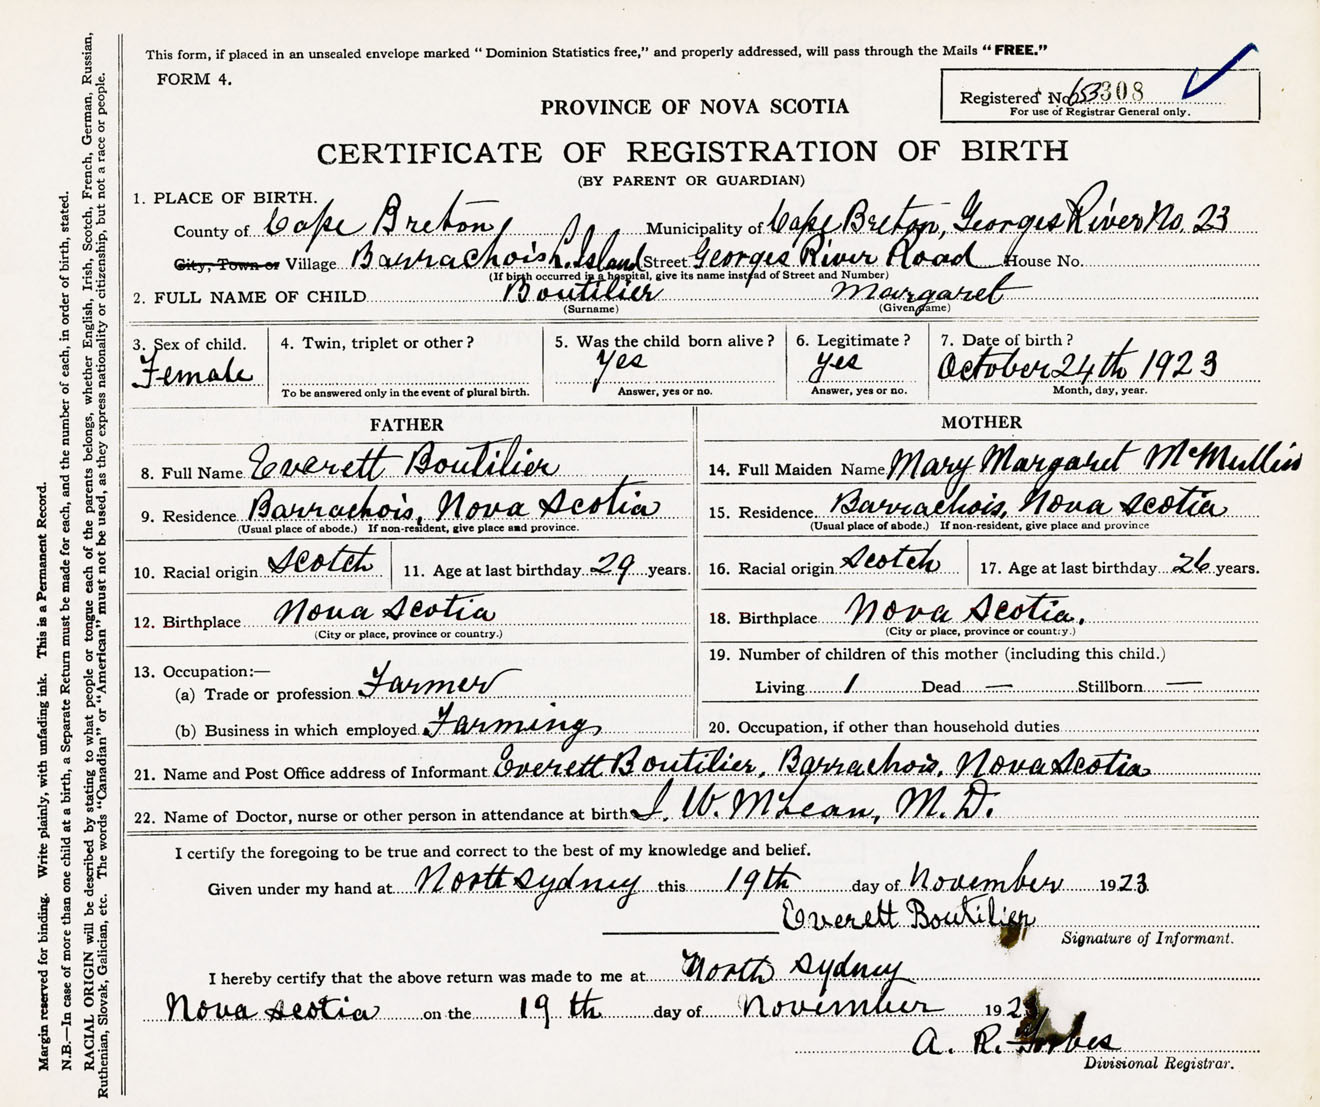 This form, if placed in an unsealed envelope marked “ Dominion Statistics free,” and properly addressed, will pass through the Mails “ FREE.”
FORM 4.
Registered No. 308
For use of Registrar General only.
PROVINCE OF NOVA SCOTIA
CERTIFICATE OF REGISTRATION OF BIRTH
(BY PARENT OR GUARDIAN)
1. PLACE OF BIRTH.
County of Cape Breton Municipality of Cape Breton, Georges River No. 23
City, Town or Village Barrachois Island Street Georges River Road House No.
(If birth occurred in a hospital, give its name instead of Street and Number)
2. FULL NAME OF CHILD Boutilier Margaret
(Surname) (Given name)
3. Sex of child. 4. Twin, triplet or other ? 5. Was the child born alive ? 6. Legitimate ? 7. Date of birth ?
Female Yes Yes October 24th 1923
To be answered only in the event of plural birth. Answer, yes or no. Answer, yes or no. Month, day, year.
FATHER MOTHER
8. Full Name Everett Boutilier 14. Full Maiden Name Mary Margaret McMullin
9. Residence Barrachois, Nova Scotia 15. Residence Barrachois, Nova Scotia
(Usual place of abode.) If non-resident, give place and province. (Usual place of abode.) If non-resident, give place and province
10. Racial origin Scotch 11. Age at last birthday 29 years. 16. Racial origin Scotch 17. Age at last birthday 26 years.
12. Birthplace Nova Scotia 18. Birthplace Nova Scotia.
(City or place, province or country.) (City or place, province or country.)
13. Occupation:— 19. Number of children of this mother (including this child.)
(a) Trade or profession Farmer Living 1 Dead — Stillborn —
(b) Business in which employed Farming 20. Occupation, if other than household duties
21. Name and Post Office address of Informant Everett Boutilier, Barrachois, Nova Scotia
22. Name of Doctor, nurse or other person in attendance at birth W. McLean, M.D.
I certify the foregoing to be true and correct to the best of my knowledge and belief.
Given under my hand at North Sydney this 19th day of November 1923.
Everett Boutilier
Signature of Informant.
I hereby certify that the above return was made to me at North Sydney
Nova Scotia on the 19th day of November 192
A. R. Forbes
Divisional Registrar.
Margin reserved for binding. Write plainly, with unfading ink. This is a Permanent Record.
N.B.—In case of more than one child at a birth, a Separate Return must be made for each, and the number of each, in order of birth, stated.
RACIAL ORIGIN will be described by stating to what people or tongue each of the parents belongs, whether English, Irish, Scotch, French, German, Russian,
Ruthenian, Slovak, Galician, etc. The words “Canadian” or “American” must not be used, as they express nationality or citizenship, but not a race or people.